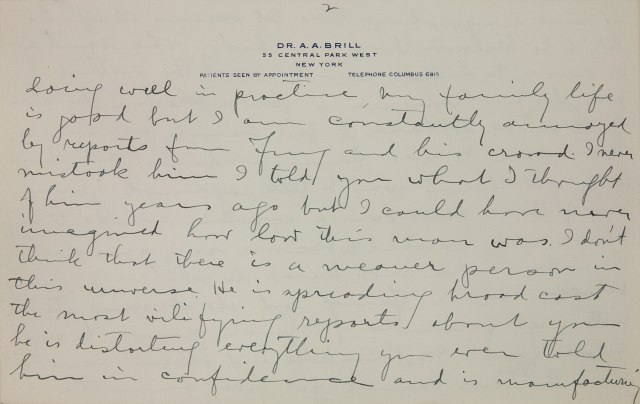 2
DR. A. A. BRILL
55 CENTRAL PARK WEST
NEW YORK
PATIENTS SEEN BY APPOINTMENT TELEPHONE COLUMBUS 6815
doing well in practice, my family life
is good but I am constantly annoyed
by reports from Jung and his crowd. I never
mistook him I told you what I thought
of him years ago but I could have never
imagined how low this man was. I don't
think that there is a meaner person in
this universe. He is spreading broad cast
the most vilifying reports about you
he is distorting everything you ever told
him in confidence and is manufacturing